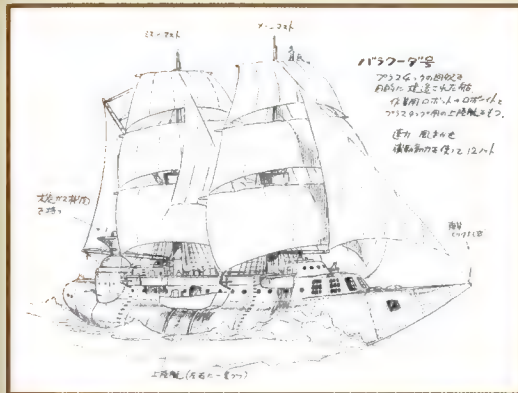 ミズンマスト
メーンマスト
バラクーダ号
プラスチックの回収を
目的に建造された船
作業用ロボット+ロボノイドと
プラスチック用の上陸艇をもつ。
速力 風まかせ
補助動力を使って12ノット
を持つ
上陸艇(左右に一隻づつ)